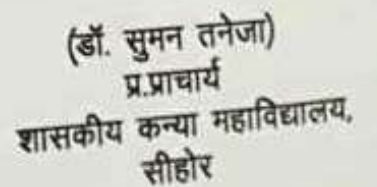 (डॉ. सुमन तनेजा)
प्र.प्राचार्य
शासकीय कन्या महाविद्यालय,
सीहोर